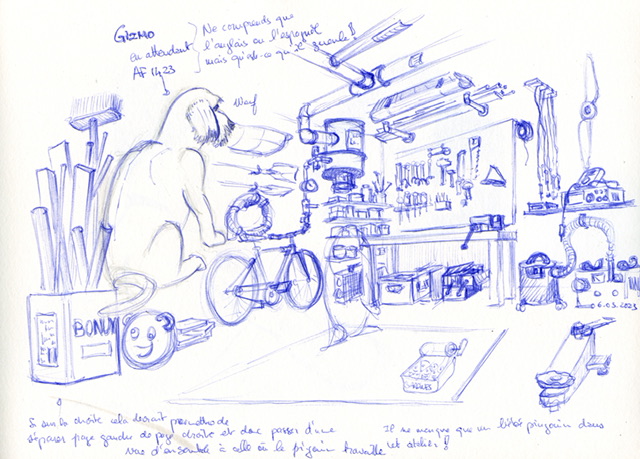 GIZMO
en attendant
AF 1423
Ne comprends que
l'anglais ou l'espagnol
mais qu'est-ce qu'il gueule !
Wouf
BONUX
6.03.2023
Si sur la droite cela devrait permettre de
séparer page gauche de page droite et donc passer d'une
vue d'ensemble à celle où le pigain travaille
Il ne manque que un bébé pingouin dans
cet atelier !